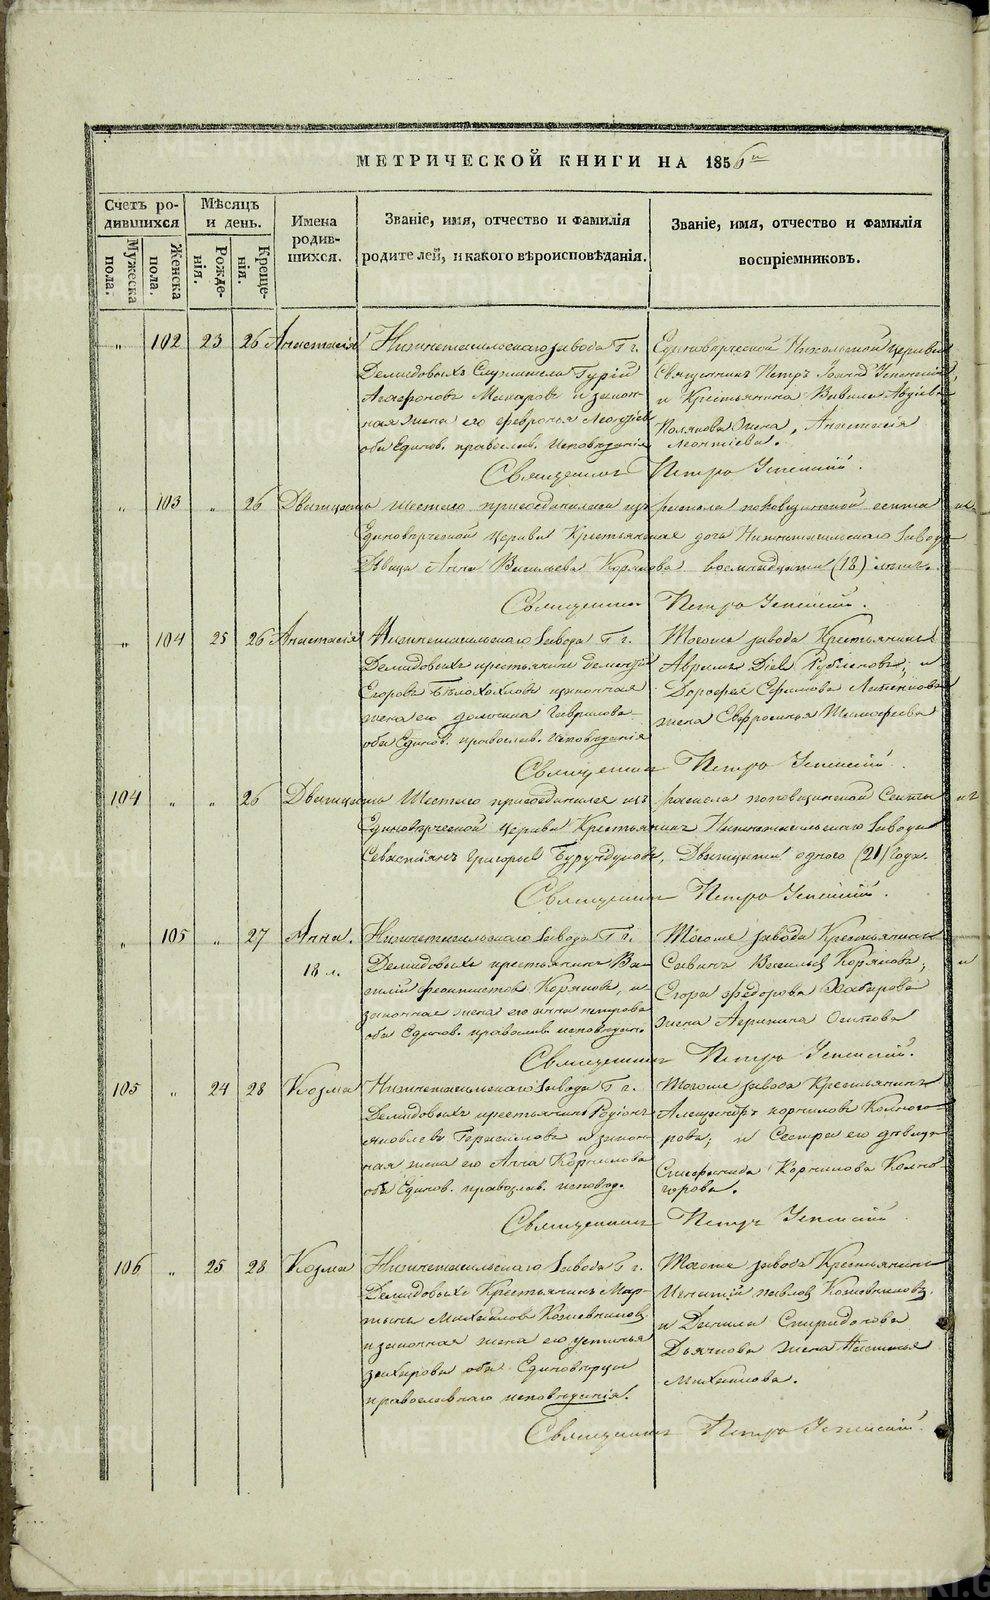 МЕТРИЧЕСКОЙ КНИГИ НА 1856 й
Счетъ ро-
дившихся
Мужеска
пола.
Женска
пола.
Мѣсяцъ
и день.
Рожде-
нія.
Креще-
нія.
Имена
родив-
шихся.
Званіе, имя, отчество и фамилія
родителей, и какого вѣроисповѣданія.
Званіе, имя, отчество и фамилія
воспріемниковъ.
" 102 23 26 Анастасія
Нижнетагильскаго завода Г. г.
Демидовыхъ Служитель Гурій
Агафоновъ Макаровъ и закон-
ная жена его Февронья Леонтіева
оба Единов. православ. исповѣданія
Единовѣрческой Никольской церкви
Священникъ Петръ Іоанновъ Успенскій,
и Крестьянина Вавилы Авдіева
Полякова Жена, Анастасія
Леонтіева.
Священникъ Петръ Успенскій.
" 103 " 26 Двадцать шестаго присоединилася изъ раскола поповщинской секты къ
Единовѣрческой церкви Крестьянская дочь Нижнетагильскаго Завода
Дѣвица Анна Васильева Корякова восемнадцати (18) лѣтъ.
Священникъ Петръ Успенскій.
" 104 25 26 Анастасія
Нижнетагильскаго Завода Г. г.
Демидовыхъ крестьянинъ Дементій
Егоровъ Бѣлохохловъ и законная
жена его Домника Гаврилова
оба Единов. православ. исповѣданія
Тогоже завода Крестьянинъ
Авраамъ, и
Дорофея Ефимова
жена Евфросинья Тимофеева
Священникъ Петръ Успенскій.
104 " " 26 Двадцать Шестаго присоединился изъ раскола поповщинской Секты къ
Единовѣрческой церкви Крестьянинъ Нижнетагильскаго Завода
Севастіанъ Григорьевъ Бурундуковъ, Двадцати одного (21) Года.
Священникъ Петръ Успенскій.
" 105 " 27 Анна.
18 л.
Нижнетагильскаго Завода Г. г.
Демидовыхъ крестьянинъ Ва-
силій Феоктистовъ Коряковъ, и
законная жена его Анна Петрова
оба Единов. православ. исповѣдан.
Тогоже завода Крестьянинъ
Савинъ Васильевъ Коряковъ, и
Егора Федорова Хабарова
жена Агрипина Осипова
Священникъ Петръ Успенскій.
105 " 24 28 Козма
Нижнетагильскаго Завода Г. г.
Демидовыхъ крестьянинъ Родіонъ
Яковлевъ Герасимовъ и закон-
ная жена его Анна Корнилова
оба Единов. православ. исповѣд.
Тогоже завода Крестьянинъ
Александръ Корниловъ Колного-
ровъ; и Сестра его дѣвица
Степанида Корнилова Колно-
горова.
Священникъ Петръ Успенскій
106 " 25 28 Козма
Нижнетагильскаго Завода Г. г.
Демидовыхъ Крестьянинъ Мар-
тынъ Михайловъ Кожевниковъ
и законная жена его Устинья
Захарова оба Единовѣрцы
православнаго исповѣданія.
Тогоже завода Крестьянинъ
Игнатій Павловъ Кожевниковъ,
и Данила Спиридонова
Дьячкова жена Настасья
Михайлова.
Священникъ Петръ Успенскій.
METRIKI.GASO-URAL.RU